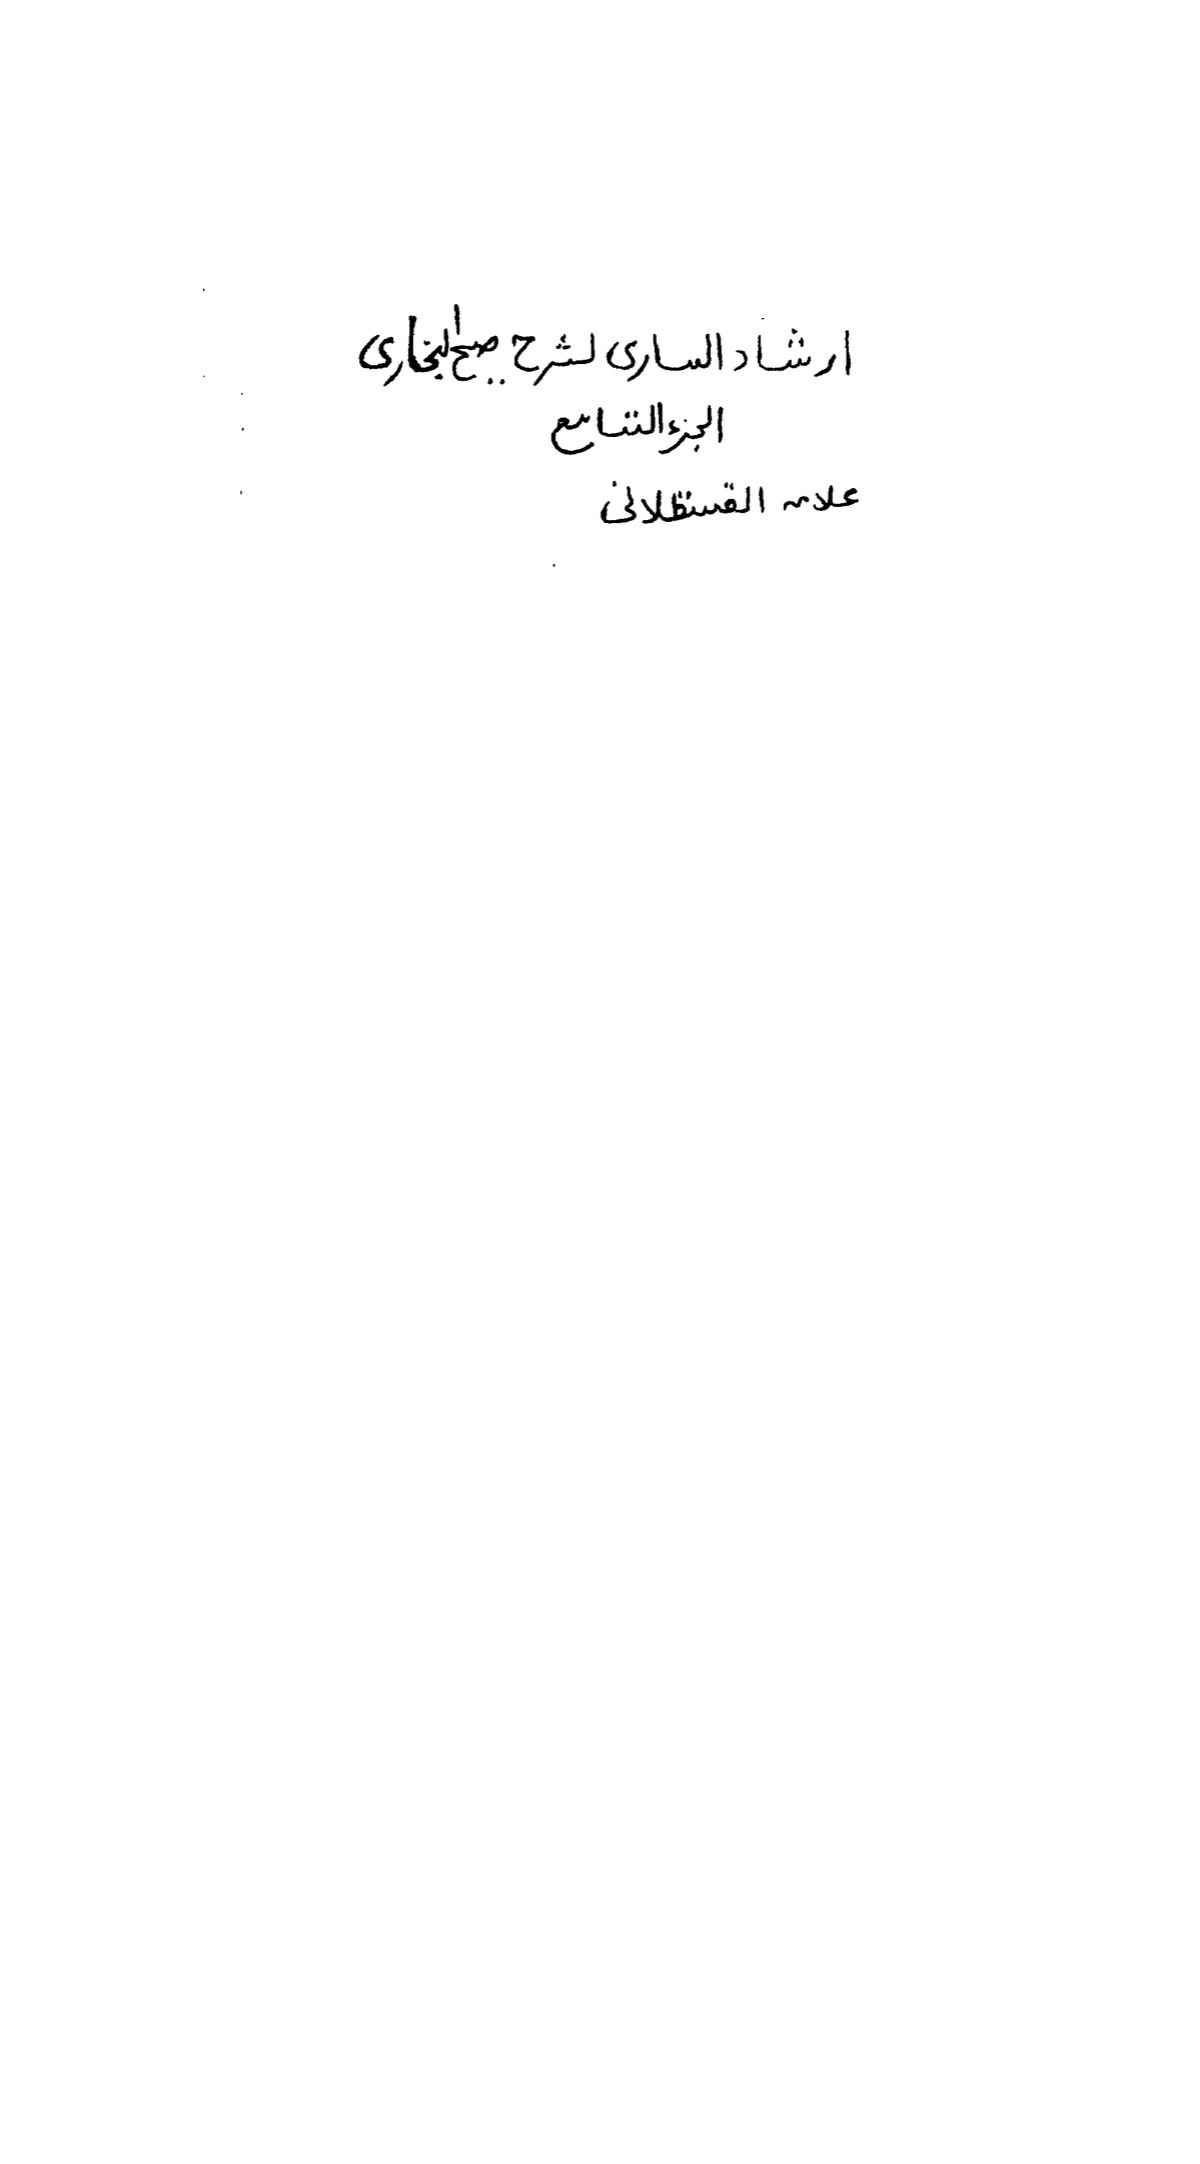 ارشاد الساری لشرح صیح البخاری
الجزء التاسع
علامہ القسطلانی